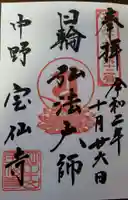 奉拝
令和二年
十月廿六日
日輪
弘法大師
中野
宝仙寺